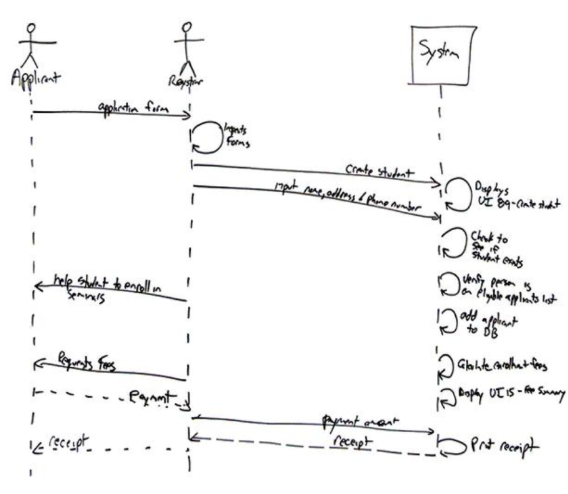 System
Applicant
Registrar
application form
Inputs
forms
Create student
Displays
UI 89-Create student
input name, address & phone number
Check to
see if
student exists
help student to enroll in
Seminars
Verify person is
on eligible applicants list
add applicant
to DB
Requests fees
Calculate enrollment fees
Display UI 15 - Fee Summary
Payment
payment amount
receipt
receipt
Print receipt